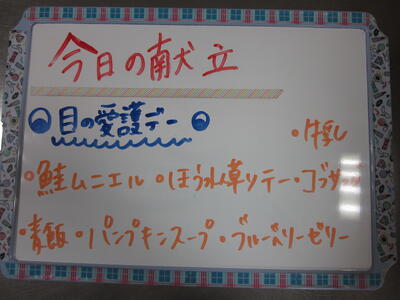 今日の献立
目の愛護デー
・牛乳
・鮭ムニエル ・ほうれん草ソテー ・コブサラダ
・麦飯 ・パンプキンスープ ・ブルーベリーゼリー